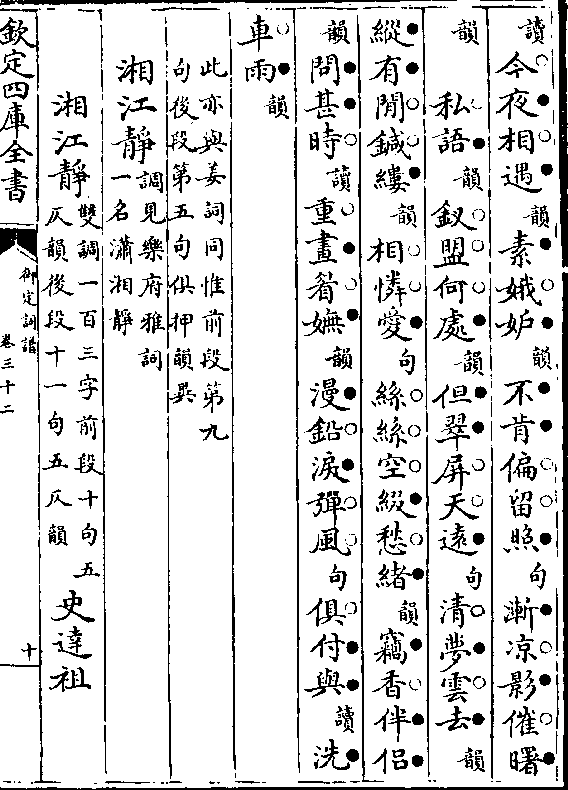 讀今夜相遇韻素娥妒韻不肯偏留照句漸凉影催曙
韻私語韻釵盟何處韻但翠屏天遠句清夢雲去韻
縱有閒鍼縷韻相憐愛句絲絲空綴愁緒韻竊香伴侣
韻問甚時讀重畫眉嫵韻漫鉛淚彈風句俱付與讀洗
車雨韻
此亦與姜詞同惟前段第九
句後段第五句俱押韻異
湘江靜調見樂府雅詞
一名瀟湘靜
湘江靜雙調一百三字前段十句五
仄韻後段十一句五仄韻 史達祖
欽定四庫全書 御定詞譜 卷三十二 十